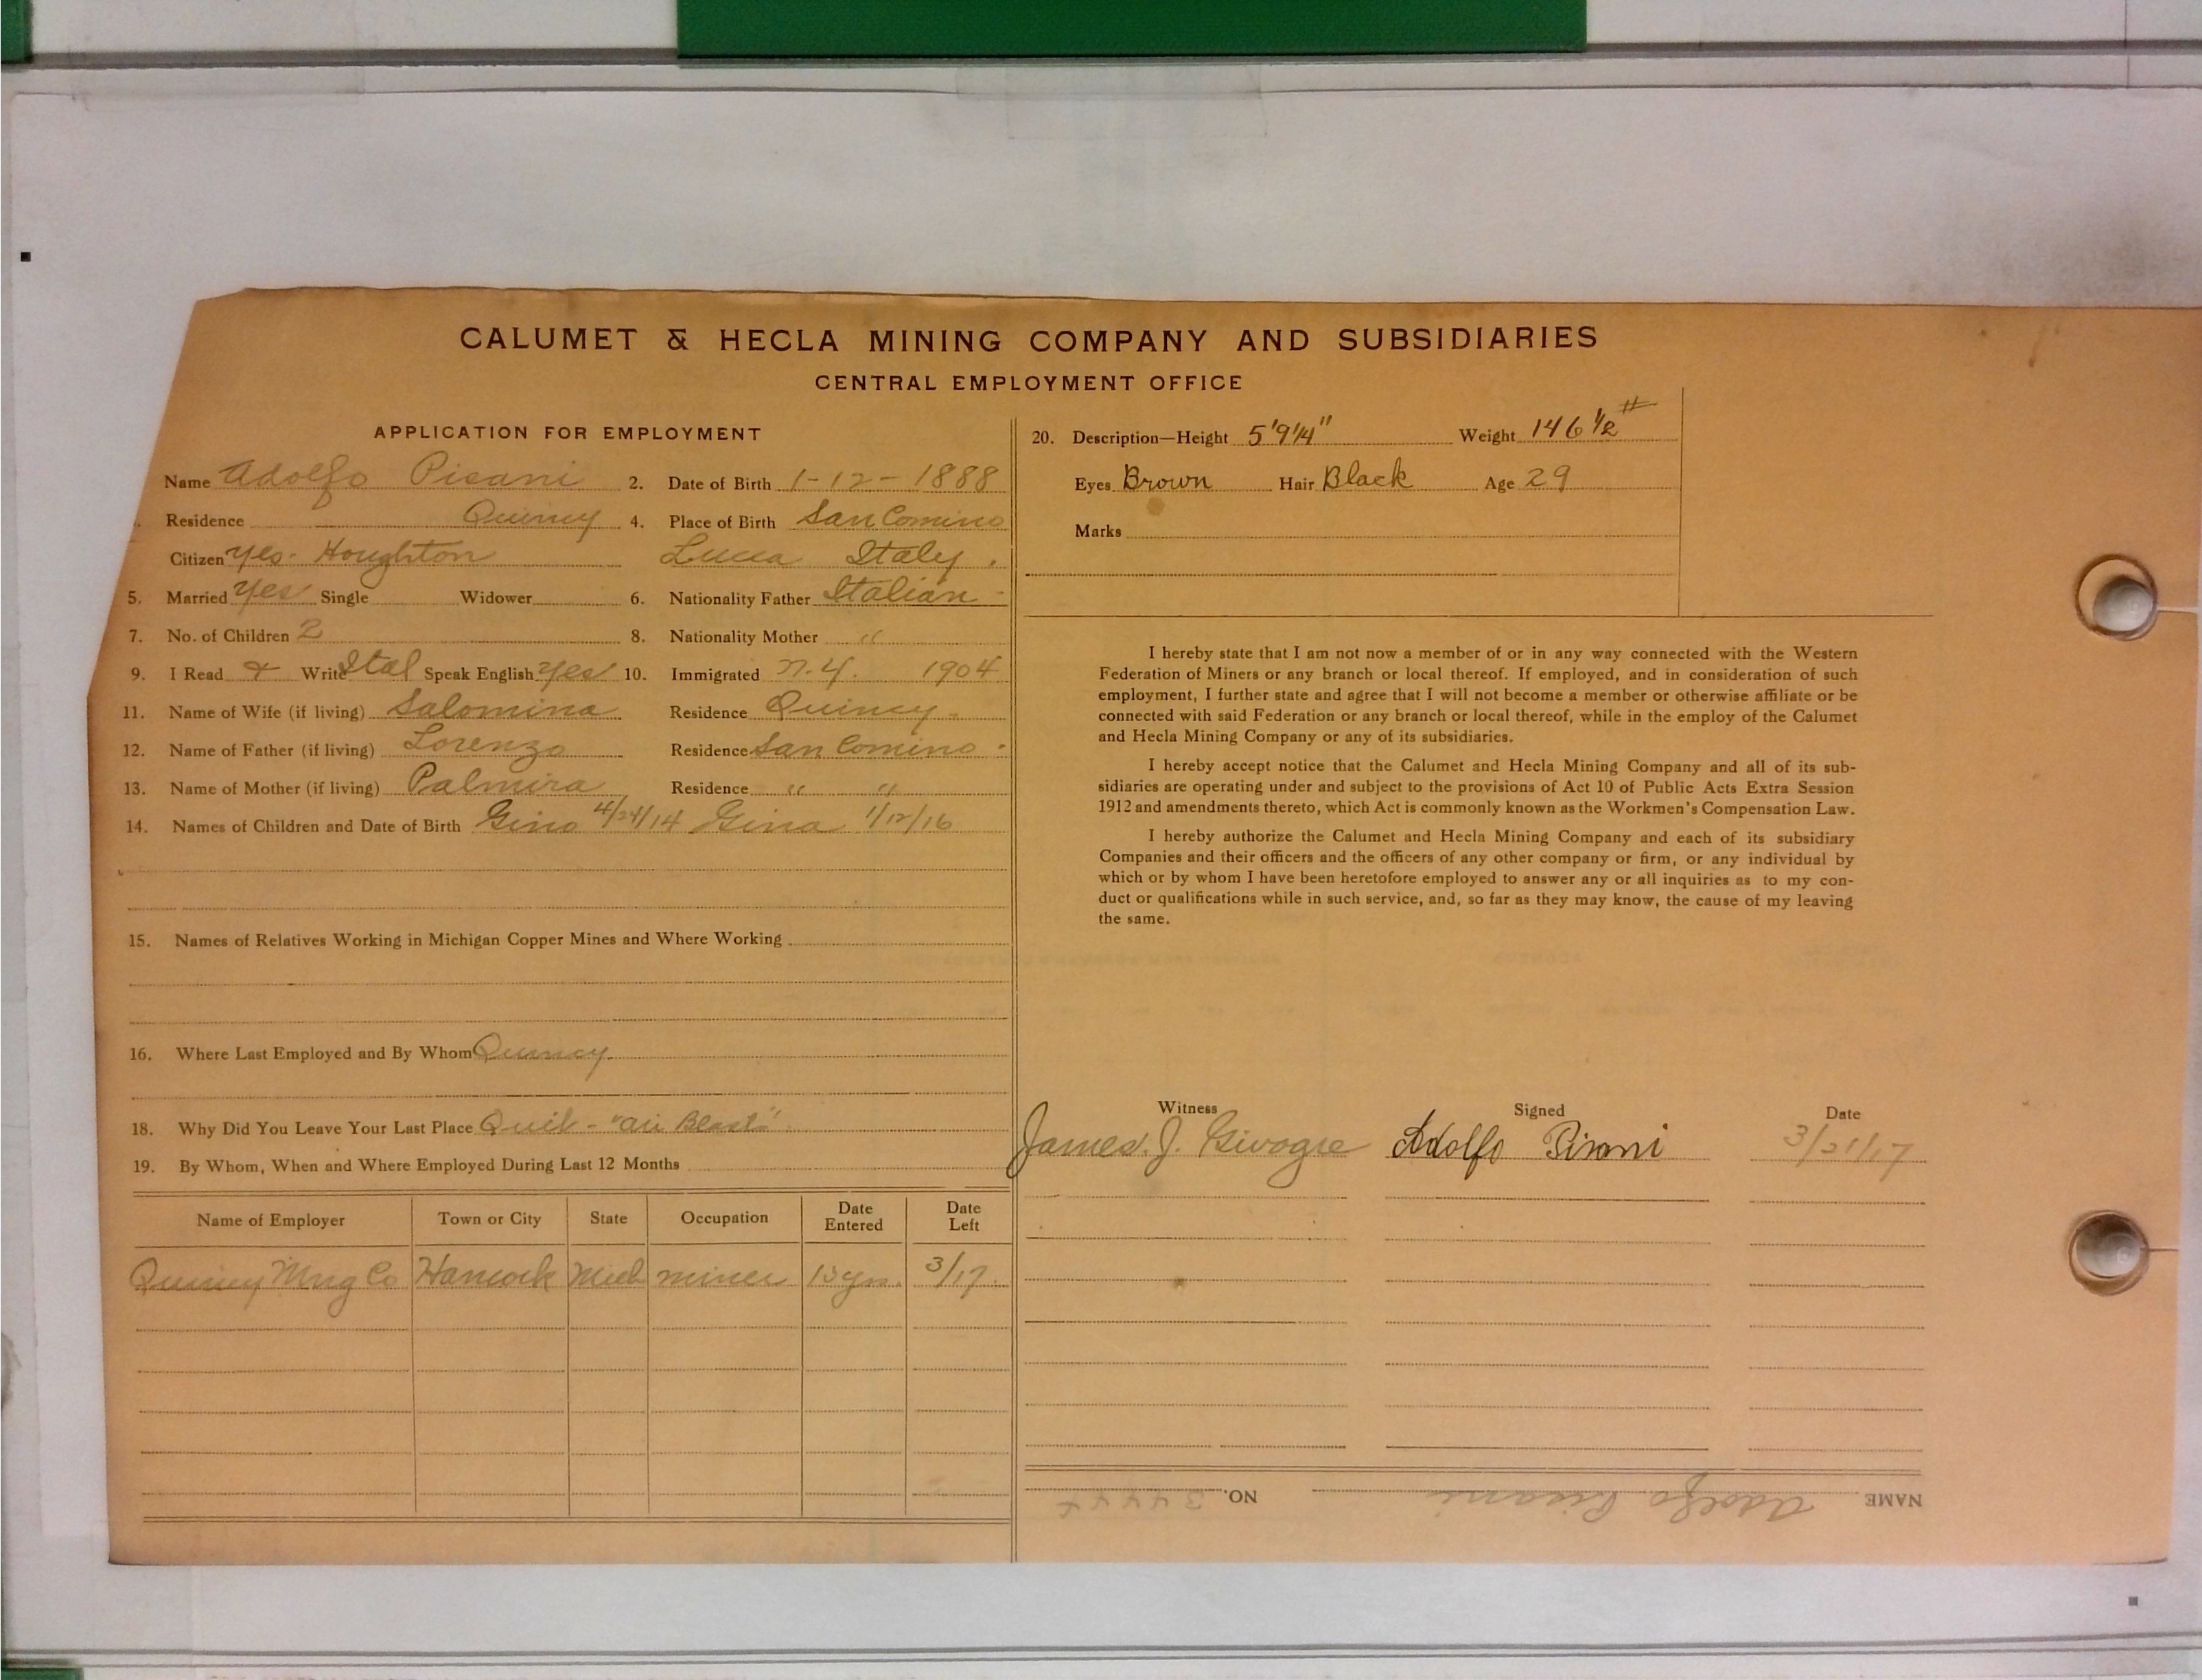 CALUMET & HECLA MINING COMPANY AND SUBSIDIARIES
CENTRAL EMPLOYMENT OFFICE
APPLICATION FOR EMPLOYMENT
Name Adolfo Pisani 2. Date of Birth 1-12-1888
Residence Quincy 4. Place of Birth San Comino
Citizen yes. Houghton Lucca Italy.
5. Married yes Single Widower 6. Nationality Father Italian
7. No. of Children 2 8. Nationality Mother "
9. I Read & Write Ital Speak English yes 10. Immigrated N.Y. 1904
11. Name of Wife (if living) Salomina Residence Quincy
12. Name of Father (if living) Lorenzo Residence San Comino
13. Name of Mother (if living) Palmira Residence " "
14. Names of Children and Date of Birth Gino 4/24/14 Gina 1/12/16
15. Names of Relatives Working in Michigan Copper Mines and Where Working
16. Where Last Employed and By Whom Quincy
18. Why Did You Leave Your Last Place Quit - "Air Blast"
19. By Whom, When and Where Employed During Last 12 Months
Name of Employer Town or City State Occupation Date Entered Date Left
Quincy Mng Co Hancock Mich miner 13 yrs. 3/17.
20. Description—Height 5'9 1/4" Weight 146 1/2 #
Eyes Brown Hair Black Age 29
Marks
I hereby state that I am not now a member of or in any way connected with the Western
Federation of Miners or any branch or local thereof. If employed, and in consideration of such
employment, I further state and agree that I will not become a member or otherwise affiliate or be
connected with said Federation or any branch or local thereof, while in the employ of the Calumet
and Hecla Mining Company or any of its subsidiaries.
I hereby accept notice that the Calumet and Hecla Mining Company and all of its sub-
sidiaries are operating under and subject to the provisions of Act 10 of Public Acts Extra Session
1912 and amendments thereto, which Act is commonly known as the Workmen's Compensation Law.
I hereby authorize the Calumet and Hecla Mining Company and each of its subsidiary
Companies and their officers and the officers of any other company or firm, or any individual by
which or by whom I have been heretofore employed to answer any or all inquiries as to my con-
duct or qualifications while in such service, and, so far as they may know, the cause of my leaving
the same.
Witness Signed Date
James. J. Givogre Adolfo Pisani 3/21/17
NAME Adolfo Pisani NO.